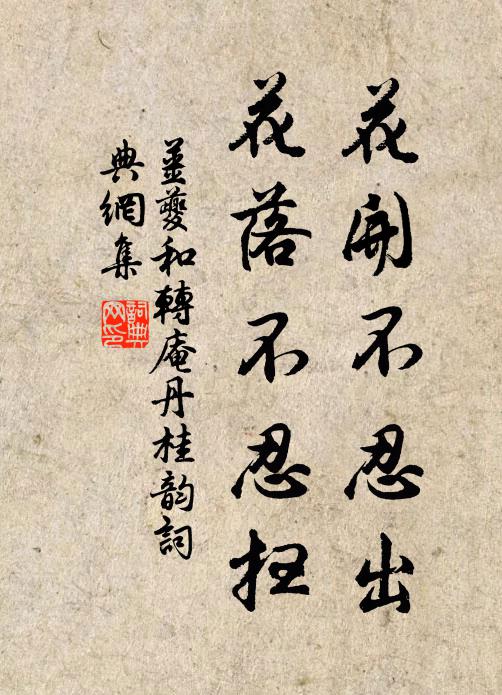 花開不忍出
花落不忍扫
薑夔和轉庵丹桂韵詞
典網集
詞典
网印